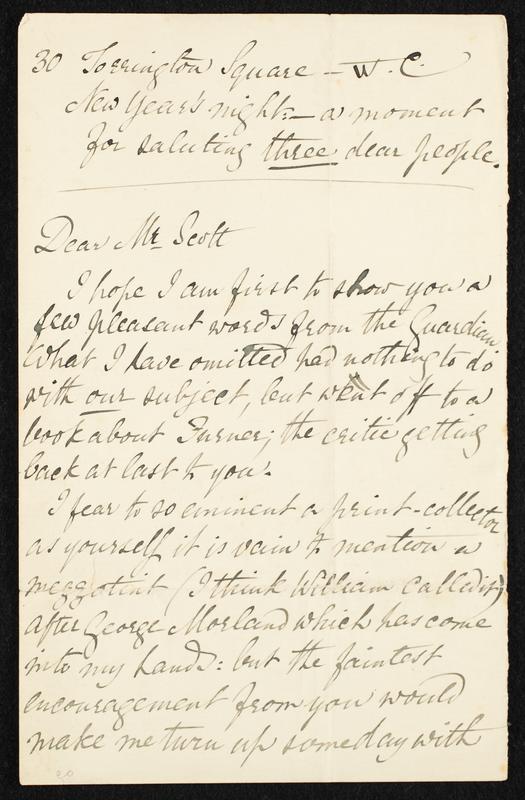 30 Torrington Square – W.C.
New Year's night:– a moment
for saluting three dear people.
Dear Mr Scott
I hope I am first to show you a
few pleasant words from the Guardian
What I have omitted had nothing to do
with our subject, but went off to a
book about Turner; the critic getting
back at last to you.
I fear to so eminent a print-collector
as yourself it is vain to mention a
mezzotint (I think William called it)
after George Morland which has come
into my hands: but the faintest
encouragement from you would
make me turn up someday with
20